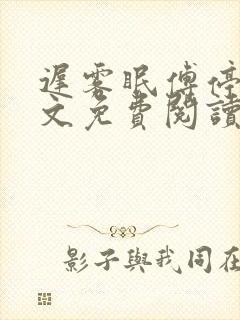 遲雾眠傅停
文免費閱讀
影子與我同在